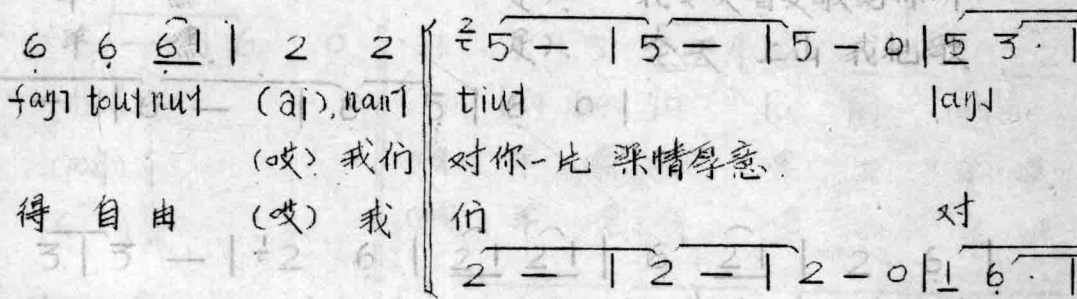 6̣ 6̣ 6̣1 | 2 2 | 5 — | 5 — | 5 — 0 | 5 3 · |
faŋ˥ tou˧ nu˧ (ai), nan˥ tiu˧ laŋ˩
(哎) 我们 对你一片 深情厚意.
得 自 由 (哎) 我 们 对
2 — | 2 — | 2 — 0 | 1 6̣ · |